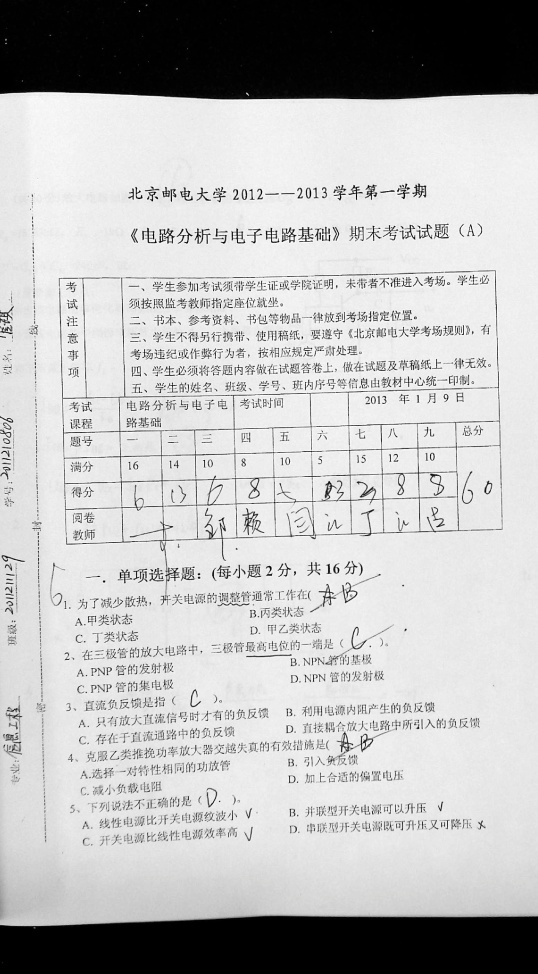 北京邮电大学 2012——2013 学年第一学期
《电路分析与电子电路基础》期末考试试题（A）
考试注意事项
一、学生参加考试须带学生证或学院证明，未带者不准进入考场。学生必
须按照监考教师指定座位就坐。
二、书本、参考资料、书包等物品一律放到考场指定位置。
三、学生不得另行携带、使用稿纸，要遵守《北京邮电大学考场规则》，有
考场违纪或作弊行为者，按相应规定严肃处理。
四、学生必须将答题内容做在试题答卷上，做在试题及草稿纸上一律无效。
五、学生的姓名、班级、学号、班内序号等信息由教材中心统一印制。
考试课程 电路分析与电子电路基础 考试时间 2013 年 1 月 9 日
题号 一 二 三 四 五 六 七 八 九 总分
满分 16 14 10 8 10 5 15 12 10
得分 6 13 6 8 8 8 60
阅卷教师
6
一．单项选择题：(每小题 2 分，共 16 分)
1. 为了减少散热，开关电源的调整管通常工作在( B
A.甲类状态 B.丙类状态
C. 丁类状态 D. 甲乙类状态
2、在三极管的放大电路中，三极管最高电位的一端是（ C ）。
A. PNP 管的发射极 B. NPN 管的基极
C. PNP 管的集电极 D. NPN 管的发射极
3、直流负反馈是指（ C ）。
A. 只有放大直流信号时才有的负反馈 B. 利用电源内阻产生的负反馈
C. 存在于直流通路中的负反馈 D. 直接耦合放大电路中所引入的负反馈
4、克服乙类推挽功率放大器交越失真的有效措施是( B
A.选择一对特性相同的功放管 B. 引入负反馈
C. 减小负载电阻 D. 加上合适的偏置电压
5、下列说法不正确的是（ D ）。
A. 线性电源比开关电源纹波小 √ B. 并联型开关电源可以升压 √
C. 开关电源比线性电源效率高 √ D. 串联型开关电源既可升压又可降压 x
专业: 信息工程 班级: 201121129 学号: 2011210806 姓名:
密 封 线